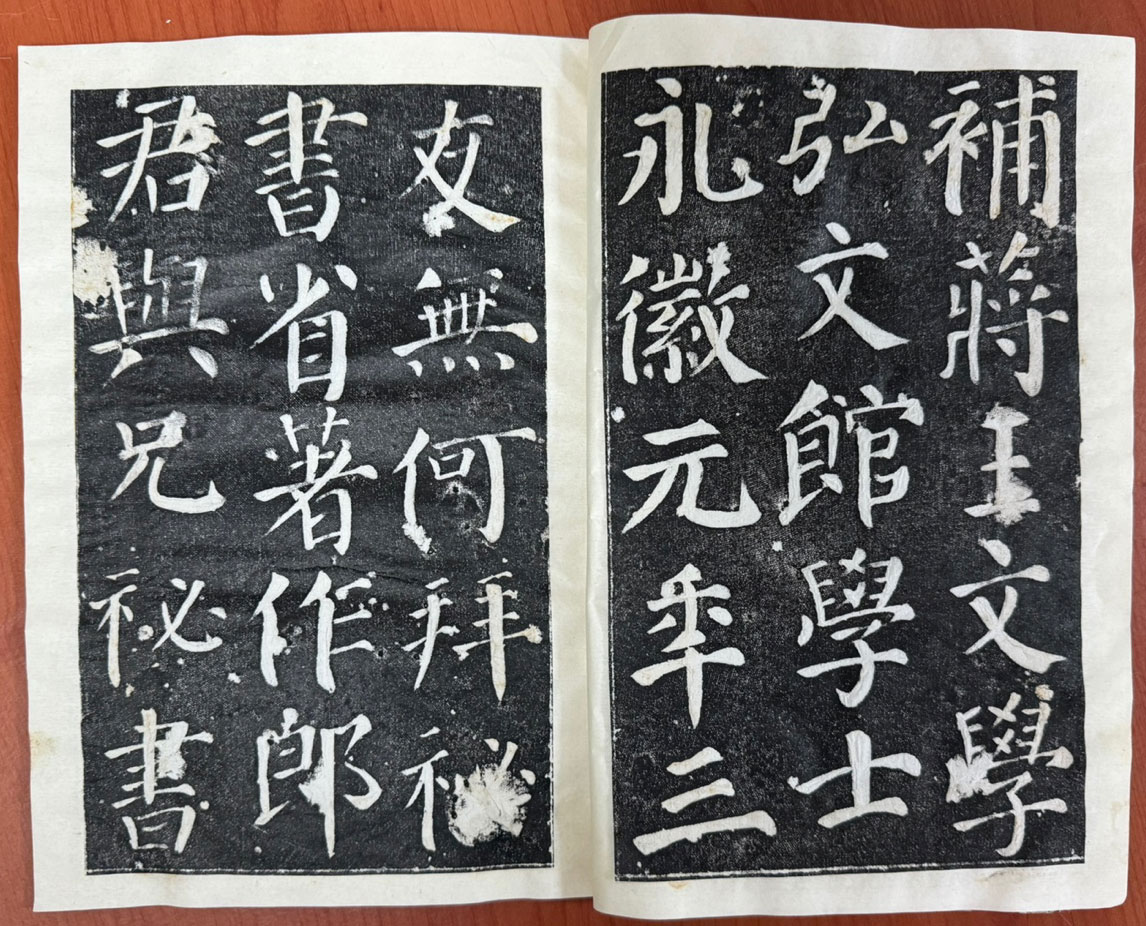 補蔣王文學
弘文館學士
永徽元年三
友無何拜祕
書省著作郎
君與兄祕書